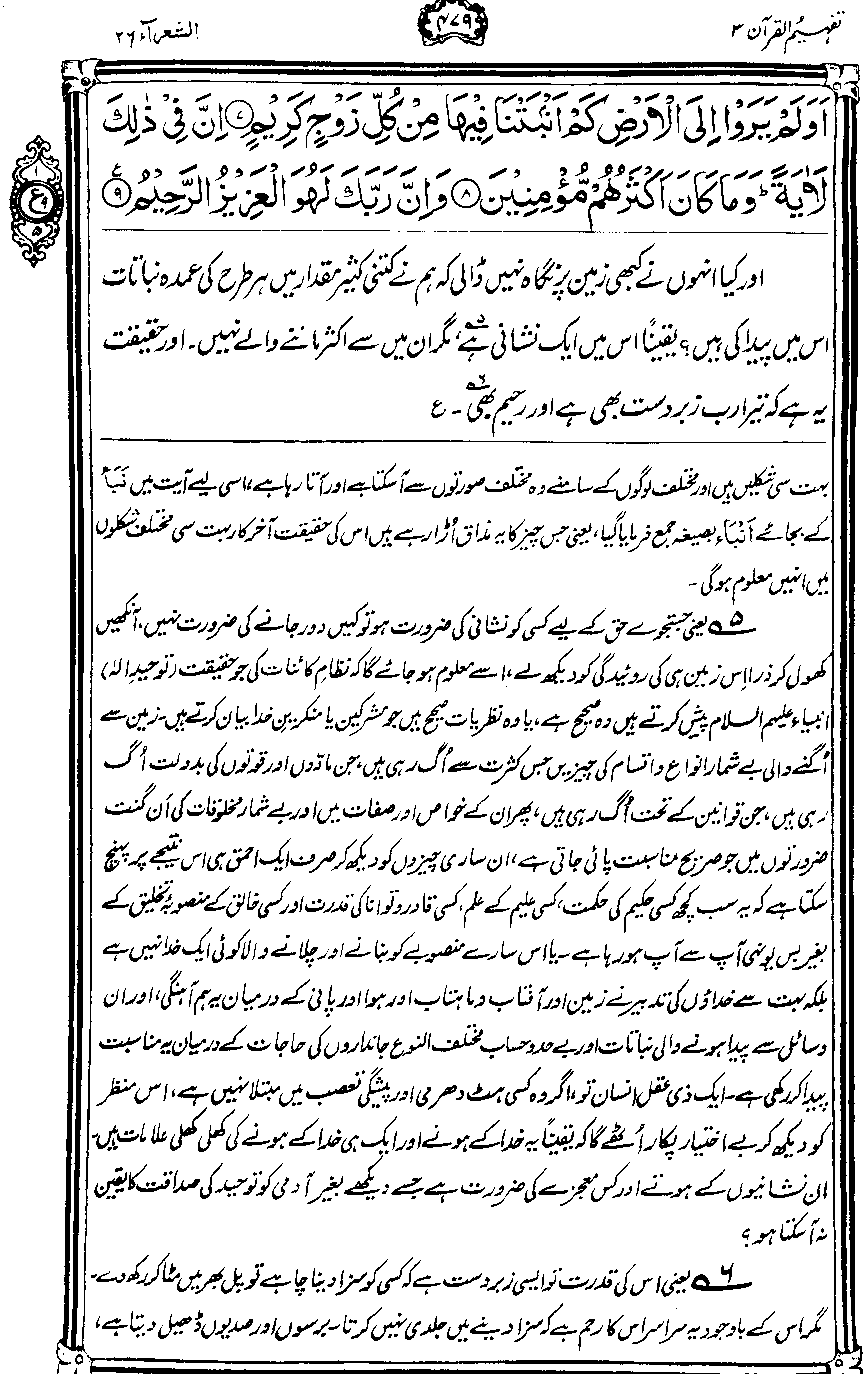 تفہیم القرآن ۳
۴۷۹
الشعرآء ۲۶
اَوَلَمْ يَرَوْا اِلَى الْاَرْضِ كَمْ اَنْۢبَتْنَا فِيْهَا مِنْ كُلِّ زَوْجٍ كَرِيْمٍ ﴿۷﴾ اِنَّ فِيْ ذٰلِكَ
لَاٰيَةً ؕ وَمَا كَانَ اَكْثَرُهُمْ مُّؤْمِنِيْنَ ﴿۸﴾ وَاِنَّ رَبَّكَ لَهُوَ الْعَزِيْزُ الرَّحِيْمُ ﴿۹﴾ ع
۱
ع
۵
اور کیا انہوں نے کبھی زمین پر نگاہ نہیں ڈالی کہ ہم نے کتنی کثیر مقدار میں ہر طرح کی عمدہ نباتات
اس میں پیدا کی ہیں؟ یقیناً اس میں ایک نشانی ہے۵، مگر ان میں سے اکثر ماننے والے نہیں۔ اور حقیقت
یہ ہے کہ تیرا رب زبردست بھی ہے اور رحیم بھی۶۔ ع
بہت سی شکلیں ہیں اور مختلف لوگوں کے سامنے وہ مختلف صورتوں سے آسکتا ہے اور آتا رہا ہے، اسی لیے آیت میں نَبَأ
کے بجائے اَنْبَاء بصیغہ جمع فرمایا گیا، یعنی جس چیز کا یہ مذاق اُڑا رہے ہیں اس کی حقیقت آخرکار بہت سی مختلف شکلوں
میں انہیں معلوم ہوگی۔
۵ یعنی جستجوئے حق کے لیے کسی کو نشانی کی ضرورت ہو تو کہیں دور جانے کی ضرورت نہیں، آنکھیں
کھول کر ذرا اِس زمین ہی کی روئیدگی کو دیکھ لے، اسے معلوم ہو جائے گا کہ نظامِ کائنات کی جو حقیقت (توحیدِ الٰہ)
انبیاء علیہم السلام پیش کرتے ہیں وہ صحیح ہے، یا وہ نظریات صحیح ہیں جو مشرکین یا منکرینِ خدا بیان کرتے ہیں۔ زمین سے
اُگنے والی بے شمار انواع و اقسام کی چیزیں جس کثرت سے اُگ رہی ہیں، جن مادّوں اور قوتوں کی بدولت اُگ
رہی ہیں، جن قوانین کے تحت اُگ رہی ہیں، پھر ان کے خواص اور صفات میں اور بے شمار مخلوقات کی اَن گنت
ضرورتوں میں جو صریح مناسبت پائی جاتی ہے، ان ساری چیزوں کو دیکھ کر صرف ایک احمق ہی اس نتیجے پر پہنچ
سکتا ہے کہ یہ سب کچھ کسی حکیم کی حکمت، کسی علیم کے علم، کسی قادر و توانا کی قدرت اور کسی خالق کے منصوبۂ تخلیق کے
بغیر بس یونہی آپ سے آپ ہو رہا ہے۔ یا اس سارے منصوبے کو بنانے اور چلانے والا کوئی ایک خدا نہیں ہے
بلکہ بہت سے خداؤں کی تدبیر نے زمین اور آفتاب و ماہتاب اور ہوا اور پانی کے درمیان یہ ہم آہنگی، اور ان
وسائل سے پیدا ہونے والی نباتات اور بے حد و حساب مختلف النوع جانداروں کی حاجات کے درمیان یہ مناسبت
پیدا کر رکھی ہے۔ ایک ذی عقل انسان تو، اگر وہ کسی ہٹ دھرمی اور پیشگی تعصب میں مبتلا نہیں ہے، اس منظر
کو دیکھ کر بے اختیار پکار اُٹھے گا کہ یقیناً یہ خدا کے ہونے اور ایک ہی خدا کے ہونے کی کھلی کھلی علامات ہیں۔
ان نشانیوں کے ہوتے اور کس معجزے کی ضرورت ہے جسے دیکھے بغیر آدمی کو توحید کی صداقت کا یقین
نہ آسکتا ہو؟
۶ یعنی اس کی قدرت تو ایسی زبردست ہے کہ کسی کو سزا دینا چاہے تو پل بھر میں مٹا کر رکھ دے۔
مگر اس کے باوجود یہ سراسر اس کا رحم ہے کہ سزا دینے میں جلدی نہیں کرتا۔ برسوں اور صدیوں ڈھیل دیتا ہے،